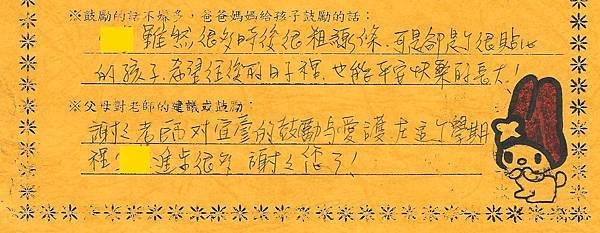 ※鼓勵的話不嫌多，爸爸媽媽給孩子鼓勵的話：
雖然很多時後很粗線條，可是卻是個很貼心
的孩子，希望往後的日子裡，也能平安快樂的長大！
※父母對老師的建議或鼓勵：
謝謝老師对宜蓁的鼓励与愛護在這个學期
裡 進步很多 謝謝您了！